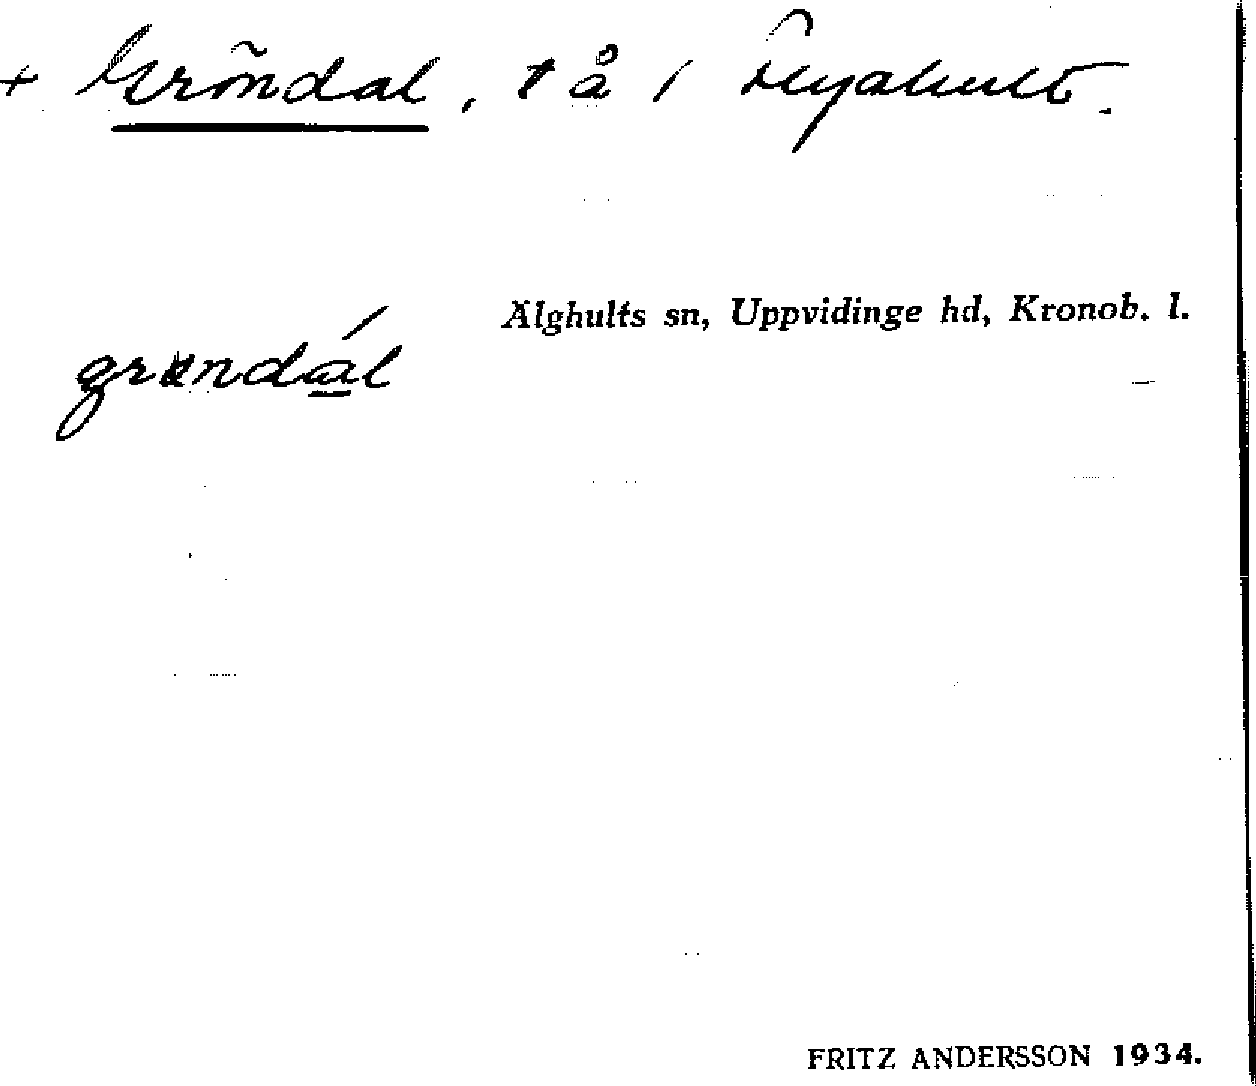 + Gröndal, t å / Flyahult.
Älghults sn, Uppvidinge hd, Kronob. l.
grøndál
FRITZ ANDERSSON 1934.